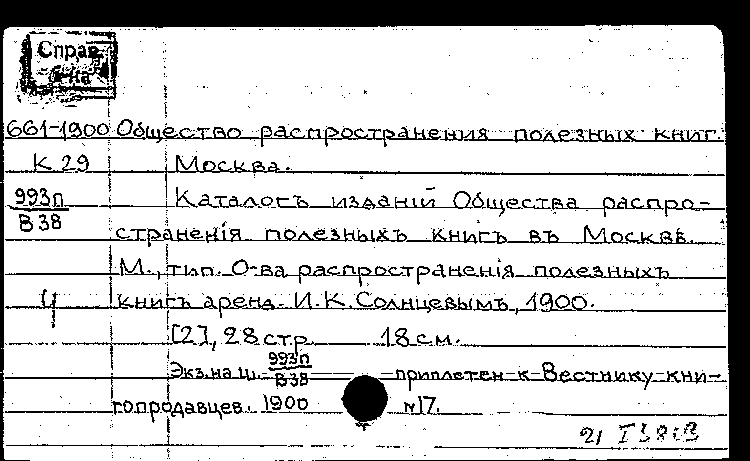 Справ
661-1900 Общество распространения полезных книг.
К 29 Москва.
993п
В 38
Каталогъ изданій Общества распро-
страненія полезныхъ книгъ въ Москвѣ.
М., тип. О-ва распространенія полезныхъ
Ч книгъ аренд. И.К. Солнцевымъ, 1900.
[2], 28 стр. 18 см.
Экз. на ш. 993п
В 38 приплетен к Вестнику кни-
гопродавцев. 1900 №17.
21